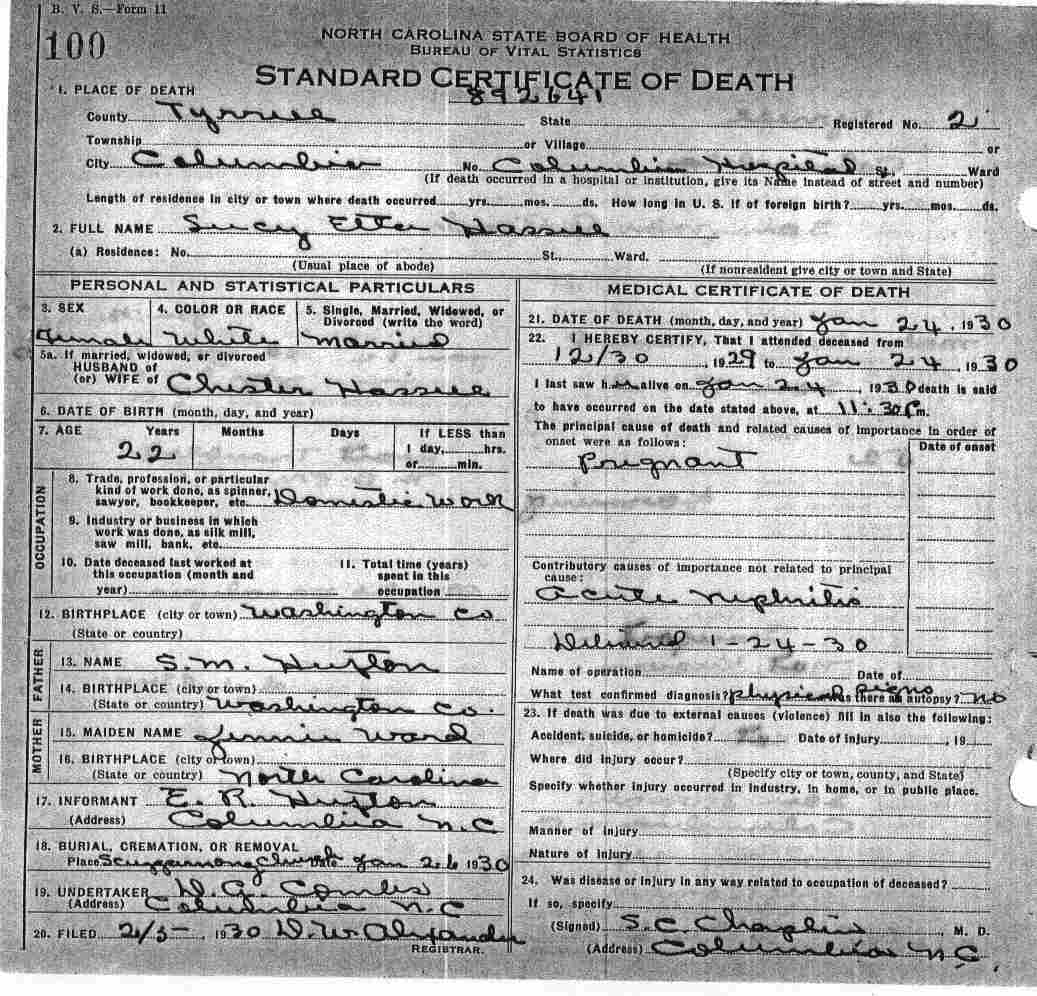 B. V. S.—Form 11
100
NORTH CAROLINA STATE BOARD OF HEALTH
BUREAU OF VITAL STATISTICS
STANDARD CERTIFICATE OF DEATH
892641
1. PLACE OF DEATH
County Tyrrell State Registered No. 2
Township or Village or
City Columbia No. Columbia Hospital St., Ward
(If death occurred in a hospital or institution, give its Name instead of street and number)
Length of residence in city or town where death occurred yrs. mos. ds. How long in U. S. if of foreign birth? yrs. mos. ds.
2. FULL NAME Lucy Etta Hassell
(a) Residence: No. St., Ward.
(Usual place of abode) (If nonresident give city or town and State)
PERSONAL AND STATISTICAL PARTICULARS
3. SEX 4. COLOR OR RACE 5. Single, Married, Widowed, or
Divorced (write the word)
Female White Married
5a. If married, widowed, or divorced
HUSBAND of
(or) WIFE of Chester Hassell
6. DATE OF BIRTH (month, day, and year)
7. AGE Years Months Days If LESS than
1 day, hrs.
or min.
22
OCCUPATION
8. Trade, profession, or particular
kind of work done, as spinner,
sawyer, bookkeeper, etc. Domestic Work
9. Industry or business in which
work was done, as silk mill,
saw mill, bank, etc.
10. Date deceased last worked at 11. Total time (years)
this occupation (month and spent in this
year) occupation
12. BIRTHPLACE (city or town) Washington Co
(State or country)
FATHER
13. NAME S. M. Hufton
14. BIRTHPLACE (city or town)
(State or country) Washington Co.
MOTHER
15. MAIDEN NAME Jennie Ward
16. BIRTHPLACE (city or town)
(State or country) North Carolina
17. INFORMANT E. R. Hufton
(Address) Columbia N.C
18. BURIAL, CREMATION, OR REMOVAL
Place Scuppernong Church Date Jan 26 1930
19. UNDERTAKER Combs
(Address) Columbia N.C
20. FILED 2/5- 1930 D. W. Alexander
REGISTRAR.
MEDICAL CERTIFICATE OF DEATH
21. DATE OF DEATH (month, day, and year) Jan 24, 1930
22. I HEREBY CERTIFY, That I attended deceased from
12/30, 1929 to Jan 24, 1930
I last saw h alive on Jan 24, 1930 death is said
to have occurred on the date stated above, at 11:30 P m.
The principal cause of death and related causes of importance in order of
onset were as follows: Date of onset
Pregnant
Contributory causes of importance not related to principal
cause:
Acute Nephritis
Delivered 1-24-30
Name of operation Date of
What test confirmed diagnosis? physical signs Was there an autopsy? no
23. If death was due to external causes (violence) fill in also the following:
Accident, suicide, or homicide? Date of injury , 19
Where did injury occur?
(Specify city or town, county, and State)
Specify whether injury occurred in industry, in home, or in public place.
Manner of injury
Nature of injury
24. Was disease or injury in any way related to occupation of deceased?
If so, specify
(Signed) S. C. Chaplin, M. D.
(Address) Columbia N.C.